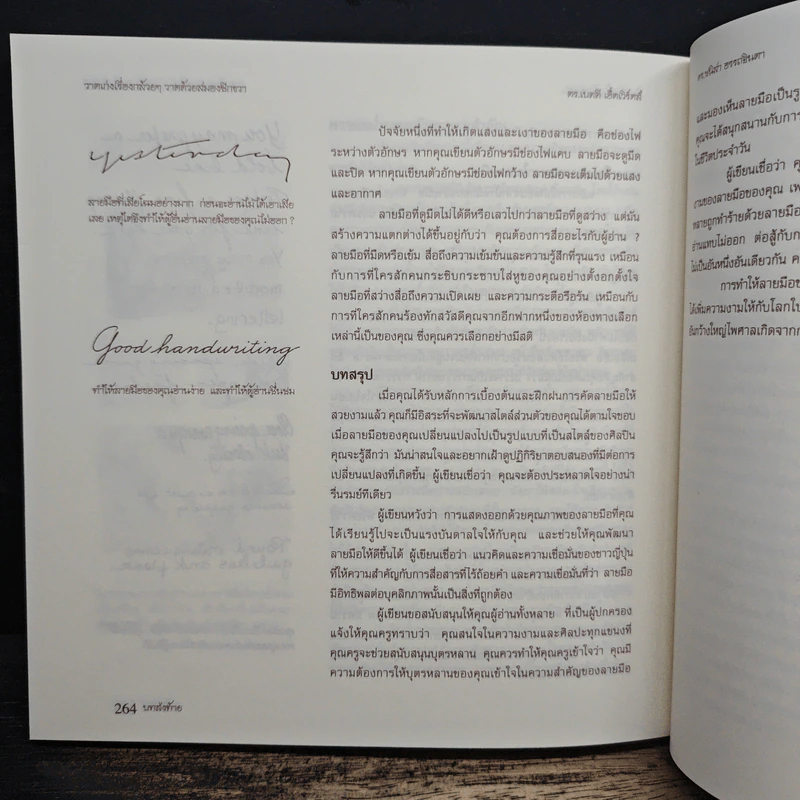 วาดเก่งเรื่องกล้วยๆ วาดด้วยสมองซีกขวา
ดร.เบตตี เอ็ดเวิร์ดส์
yesterday
ลายมือที่เสียโฉมอย่างมาก ก่อนจะอ่านไม่ได้เอาเสีย
เลย เหตุใดจึงทำให้ผู้อื่นอ่านลายมือของคุณไม่ออก ?
Good handwriting
ทำให้ลายมือของคุณอ่านง่าย และทำให้ผู้อ่านชื่นชม
ปัจจัยหนึ่งที่ทำให้เกิดแสงและเงาของลายมือ คือช่องไฟ
ระหว่างตัวอักษร หากคุณเขียนตัวอักษรมีช่องไฟแคบ ลายมือจะดูมืด
และปิด หากคุณเขียนตัวอักษรมีช่องไฟกว้าง ลายมือจะเต็มไปด้วยแสง
และอากาศ
ลายมือที่ดูมืดไม่ได้ดีหรือเลวไปกว่าลายมือที่ดูสว่าง แต่มัน
สร้างความแตกต่างได้ขึ้นอยู่กับว่า คุณต้องการสื่ออะไรกับผู้อ่าน ?
ลายมือที่มืดหรือเข้ม สื่อถึงความเข้มข้นและความรู้สึกที่รุนแรง เหมือน
กับการที่ใครสักคนกระซิบกระซาบใส่หูของคุณอย่างตั้งอกตั้งใจ
ลายมือที่สว่างสื่อถึงความเปิดเผย และความกระตือรือร้น เหมือนกับ
การที่ใครสักคนร้องทักสวัสดีคุณจากอีกฟากหนึ่งของห้องทางเลือก
เหล่านี้เป็นของคุณ ซึ่งคุณควรเลือกอย่างมีสติ
บทสรุป
เมื่อคุณได้รับหลักการเบื้องต้นและฝึกฝนการคัดลายมือให้
สวยงามแล้ว คุณก็มีอิสระที่จะพัฒนาสไตล์ส่วนตัวของคุณได้ตามใจชอบ
เมื่อลายมือของคุณเปลี่ยนแปลงไปเป็นรูปแบบที่เป็นสไตล์ของศิลปิน
คุณจะรู้สึกว่า มันน่าสนใจและอยากเฝ้าดูปฏิกิริยาตอบสนองที่มีต่อการ
เปลี่ยนแปลงที่เกิดขึ้น ผู้เขียนเชื่อว่า คุณจะต้องประหลาดใจอย่างน่า
รื่นรมย์ทีเดียว
ผู้เขียนหวังว่า การแสดงออกด้วยคุณภาพของลายมือที่คุณ
ได้เรียนรู้ไปจะเป็นแรงบันดาลใจให้กับคุณ และช่วยให้คุณพัฒนา
ลายมือให้ดีขึ้นได้ ผู้เขียนเชื่อว่า แนวคิดและความเชื่อมั่นของชาวญี่ปุ่น
ที่ให้ความสำคัญกับการสื่อสารที่ไร้ถ้อยคำ และความเชื่อมั่นที่ว่า ลายมือ
มีอิทธิพลต่อบุคลิกภาพนั้นเป็นสิ่งที่ถูกต้อง
ผู้เขียนขอสนับสนุนให้คุณผู้อ่านทั้งหลาย ที่เป็นผู้ปกครอง
แจ้งให้คุณครูทราบว่า คุณสนใจในความงามและศิลปะทุกแขนงที่
คุณครูจะช่วยสนับสนุนบุตรหลาน คุณควรทำให้คุณครูเข้าใจว่า คุณมี
ความต้องการให้บุตรหลานของคุณเข้าใจในความสำคัญของลายมือ
264 บทส่งท้าย
และมองเห็นลายมือเป็นรู
คุณจะได้สนุกสนานกับการ
ในชีวิตประจำวัน
ผู้เขียนเชื่อว่า
งานของลายมือของคุณ
หลายถูกทำร้ายด้วยลายมือ
อ่านแทบไม่ออก ต่อสู้กับ
ไม่เป็นอันหนึ่งอันเดียวกัน
การทำให้ลายมือ
ได้เพิ่มความงามให้กับโลกใบ
อันกว้างใหญ่ไพศาลเกิดจาก